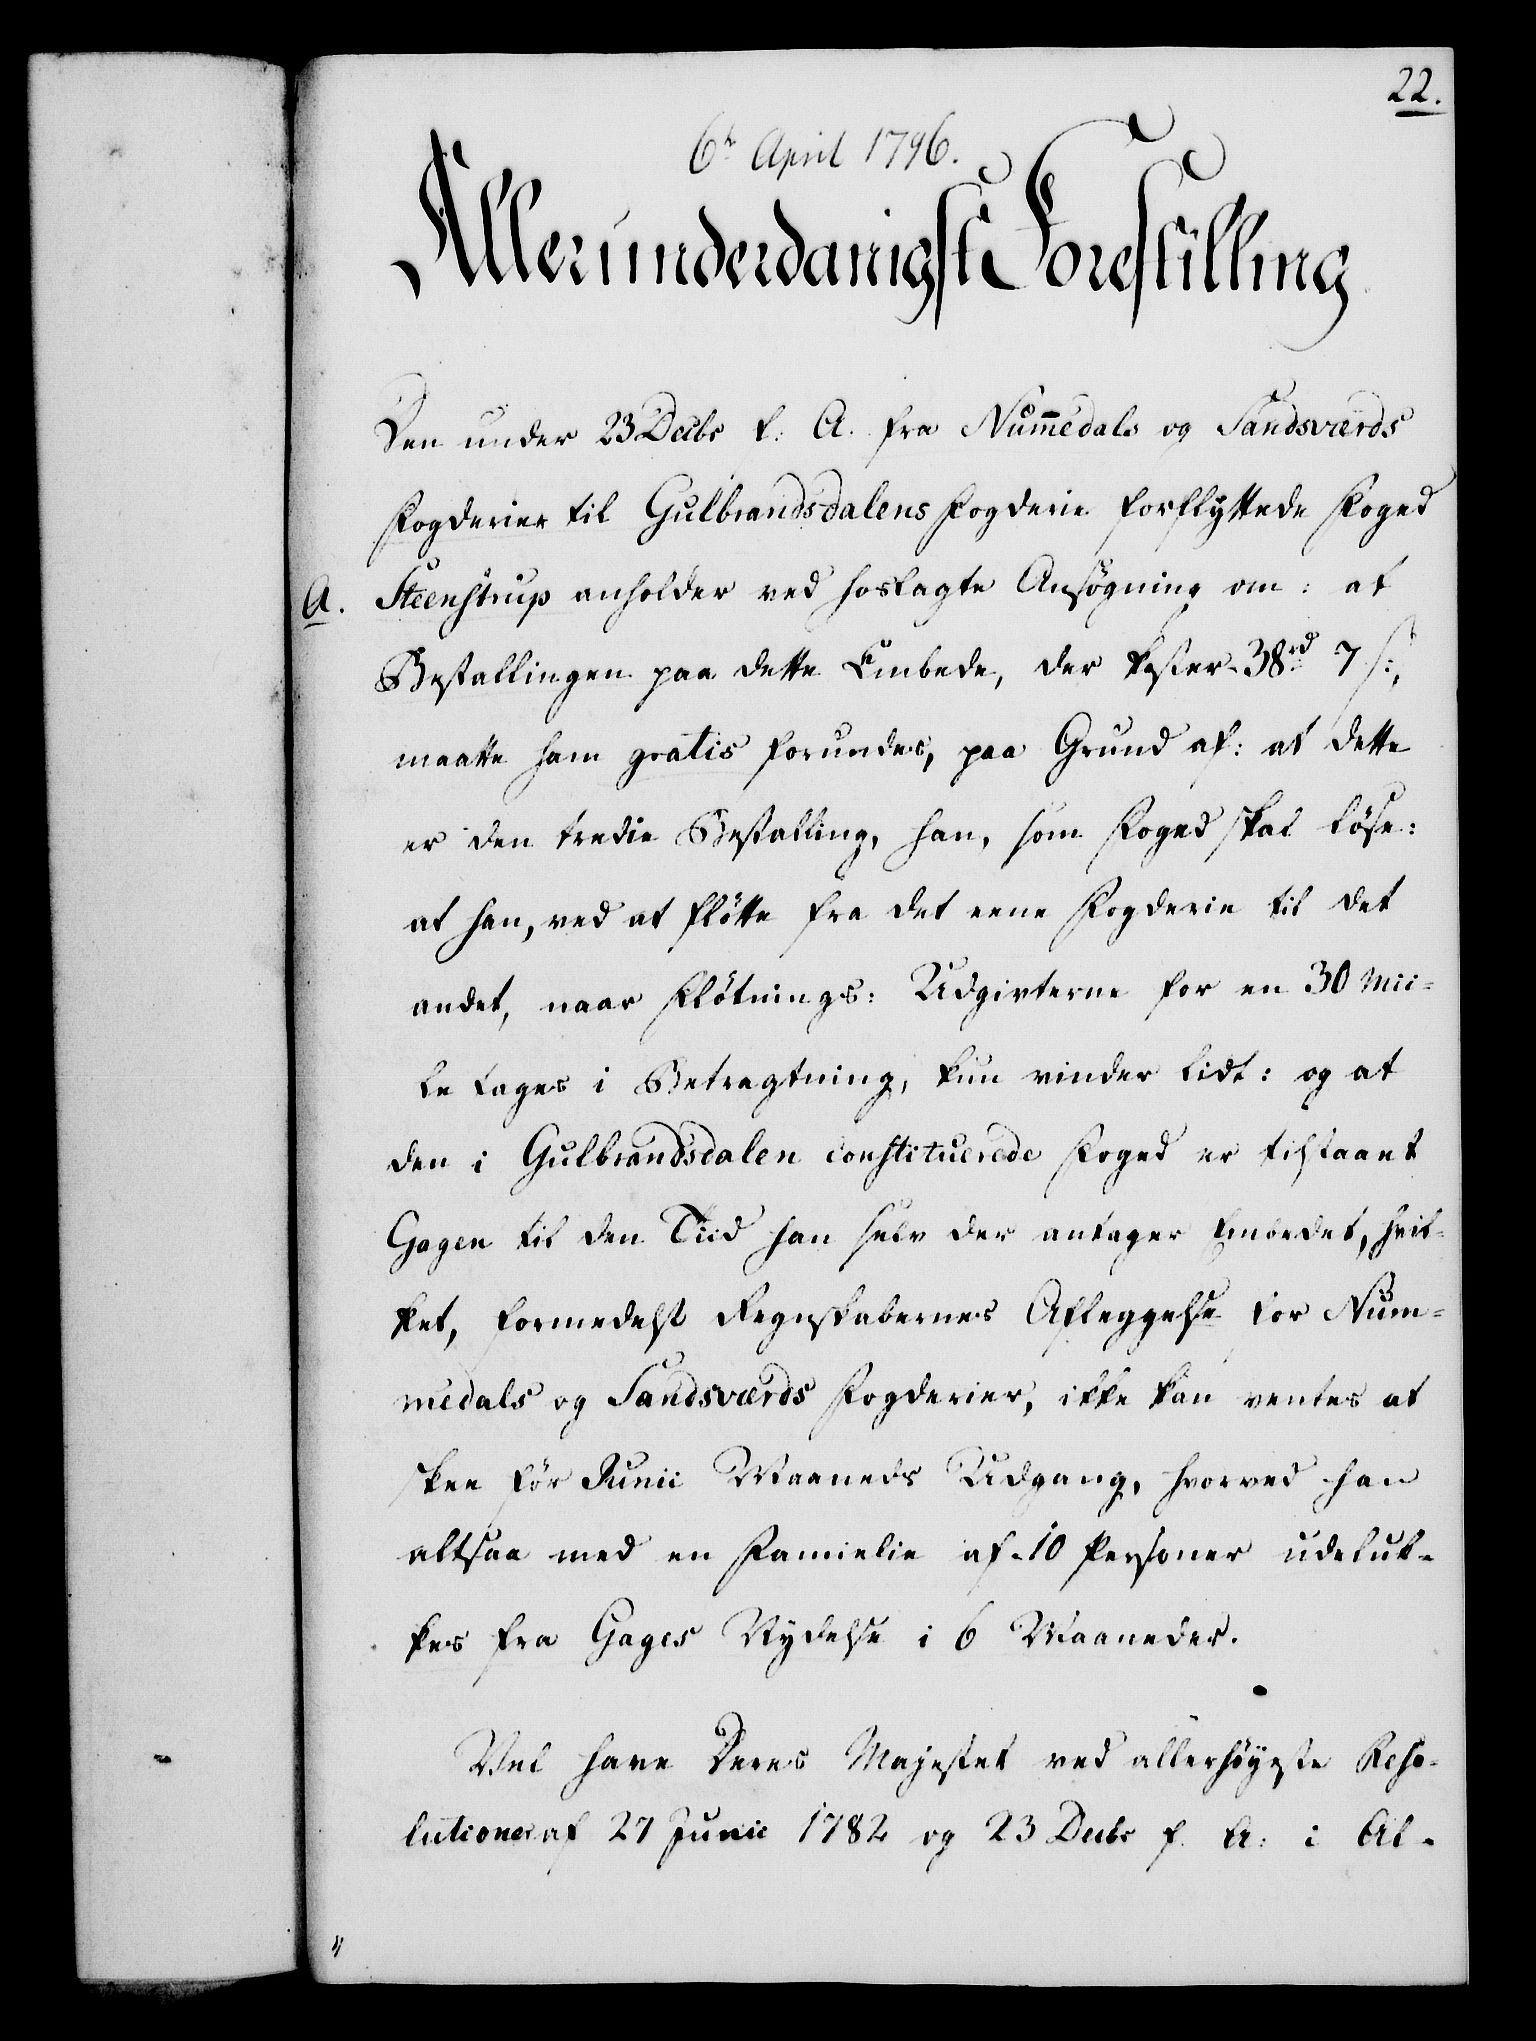 22.
6te April 1796.
Allerunderdanigst Forestilling
Den under 23 Decbr f: A. fra Nummedals og Sandsværds
Fogderier til Gulbrandsdalens Fogderie forflyttede Foged
A. Steenstrup anholder ved hoslagte Ansøgning om: at
Bestallingen paa dette Embede, der koster 38rd 7 s:,
maatte ham gratis forundes, paa Grund af: at dette
er den tredie Bestalling, han, som Foged skal løse:
at han, ved at fløtte fra det eene Fogderie til det
andet, naar Fløtnings: Udgivterne for en 30 Mii-
le tages i Betragtning, kun vinder lidt: og at
den i Gulbrandsdalen constituerede Foged er tilstaaet
Gagen til den Tiid han selv der antager Embedet, hvil-
ket, formedelst Regnskabernes Afleggelse for Num-
medals og Sandsværds Fogderier, ikke kan ventes at
skee før Junii Maaneds Udgang, hvorved han
altsaa med en Familie af 10 Personer udeluk-
kes fra Gages Nydelse i 6 Maaneder.
Vel have Deres Majestet ved allerhøyeste Reso-
lutioner af 27 Junii 1782 og 23 Decbr f. A: i Al-